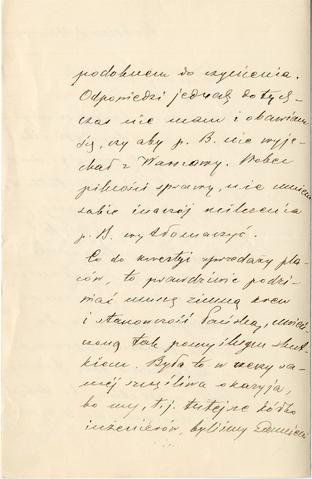 podobnem do życzenia.
Odpowiedzi jednak dotych-
czas nie mam i obawiam
się, czy aby p. B. nie wyje-
chał z Warszawy. Wobec
pilności sprawy, nie umiem
sobie inaczej milczenia
p. B. wytłomaczyć.
Co do kwestyi sprzedaży pla-
ców, to prawdziwie podzi-
wiać muszę zimną krew
i stanowczość Pańską, uwień-
czoną tak pomyślnym skut-
kiem. Była to w rzeczy sa-
mej szczęśliwa okazyja,
bo my, t. j. tutejsze kółko
inżenierów, byliśmy